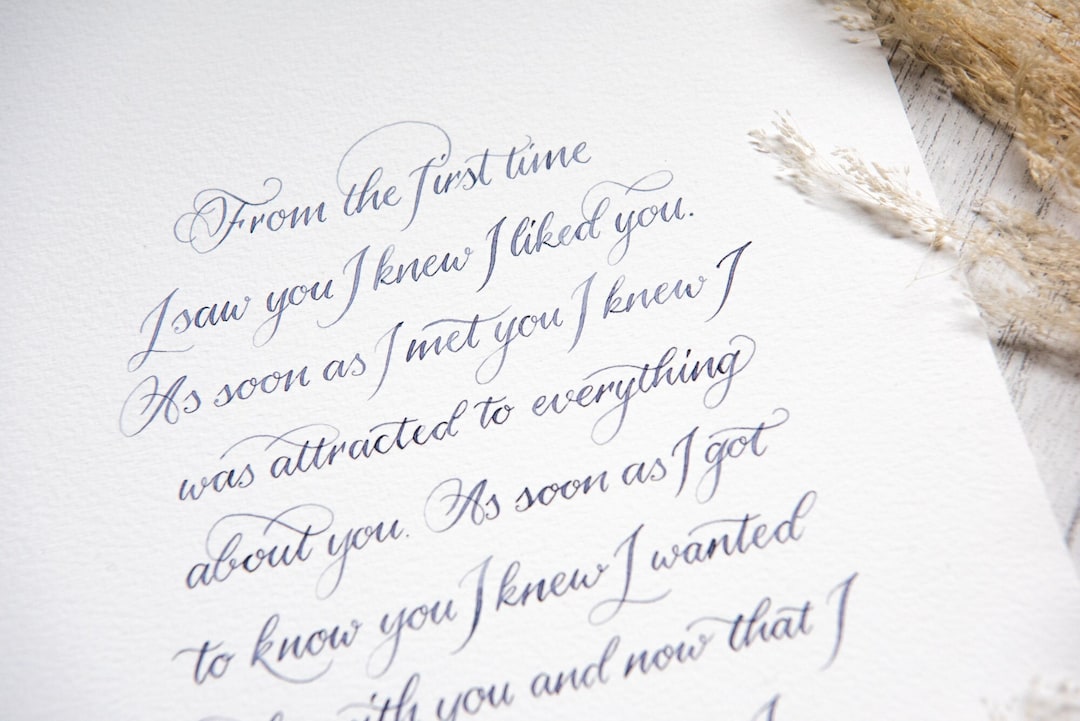 From the first time
I saw you I knew I liked you.
As soon as I met you I knew I
was attracted to everything
about you. As soon as I got
to know you I knew I wanted
with you and now that I